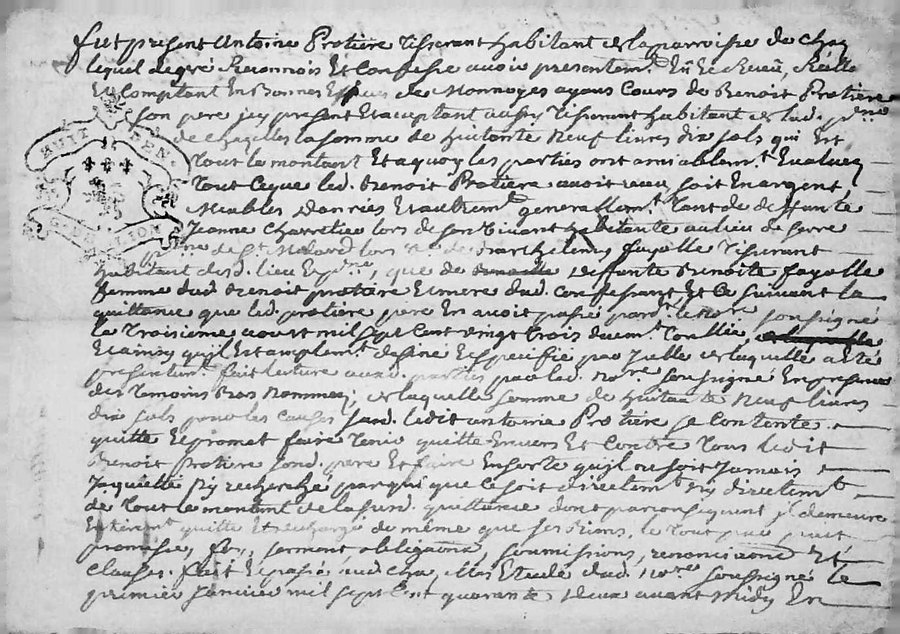 fut present Antoine Protière Tisserant habitant de la parroisse de Cha
lequel de gré Reconnois Et Confesse avoir presentem.t Eû Et Receû, Reelle
Et Comptant En Bonnes Espèces de Monnoyes ayans Cours de Benoit Protière
son pere icy present Et acceptant aussy Tisserant habitant de lad. p.
de Chazelles la somme de huitante Neuf livres dix sols qui Est
HUIT DEN.
Tout le montant Et a quoy les parties ont amiablem.t Evaluez
Tout Ce que led. Benoit Protière avoit reçu soit En argent
Meubles danrées Et autrem.t generallem.t Tant de deffunte
Jeanne Charretier lors de son Vivant habitante au lieu de
de St. Medard lors de Barthelemy fayolle Tisserant
habitant dud. lieu Et, que de deffunte Benoite fayolle
femme dud. Benoit protière Et mere dud. Confessant Et Ce suivant la
quittance que led. protière pere En avoit passé pard. le No.re soussigné
le Troisieme aoust mil sept Cent vingt trois duem.t Conllée
Et ainsy qu'il Est amplem.t designé Et specifié par Icelle de laquelle a Eté
presentem.t fait lecture auxd. parties par led. No.re soussigné En presence
des Temoins Bas Nommez, de laquelle somme de huitante Neuf livres
dix sols pour les Causes susd. ledit antoine Protière se Contente
quitte Et promet faire Tenir quitte Envers Et Contre Tous ledit
Benoit protière sond. pere Et faire En sorte qu'il ne soit Jamais
Inquietté Ny recherché par qui que Ce soit directem.t Ny Indirectem.t
de Tout le montant de la susd. quittance dont par Consequent Il demeure
Entierem.t quitte Et dechargé de même que ses Biens, le Tout par
promisses, foy, serment obligaõns, soumissions, renonciaõns Et
Clauses. fait Et passé aud. Cha Etude dud. No.re soussigné le
premier Janvier mil sept Cent quarante Deux avant midy En